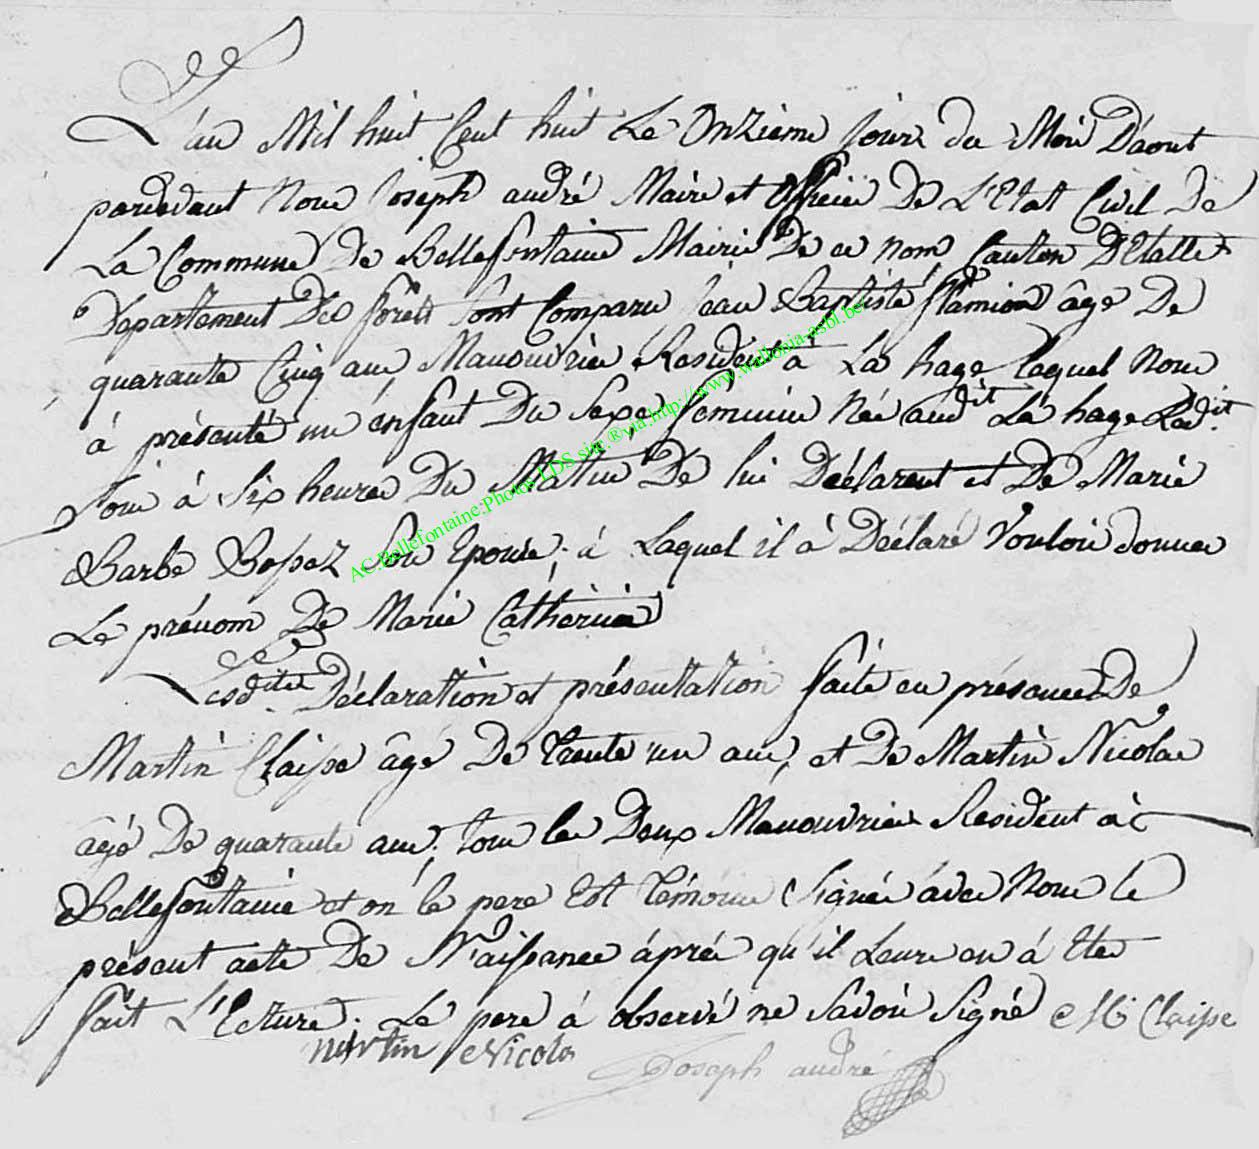 L'an Mil huit Cent huit Le Onzieme Jour du Moi D'aout
pardevant Nous Joseph andré Maire et Officier De L'Etat Civil De
La Commune De Bellefontaine Mairie De ce nom Canton D'Etalle
Departement Des forêts sont Comparu Jean Baptiste flamion âge De
quarante Cinq ans Manouvrier Resident à La hage laquel Nous
à présenté un énfant Du Sexe feminin Née audit La hage Ledit
Jour à Six heures Du Matin De lui Déclarent et De Marie
Barbe Son Epouse, à Laquel il à Déclaré Vouloir donner
Le prénom De Marie Cathérine
Lesdites Déclaration et présentation faite en présences De
Martin Claisse âgé De trente un ans, et De Martin Nicolas
âgé De quarante ans, tous les Deux Manouvrier Resident à
Bellefontaine et on le pere Et témoins Signée avec Nous le
présent acte De Naissance áprés qu'il Leurs en à Eté
fait L'Ecture. Le pere à observé ne Savoir Signé M Claisse
martin Nicolas
Joseph andré
AC.Bellefontaine:Photos LDS site.®via:http://www.wallonia-asbl.be/